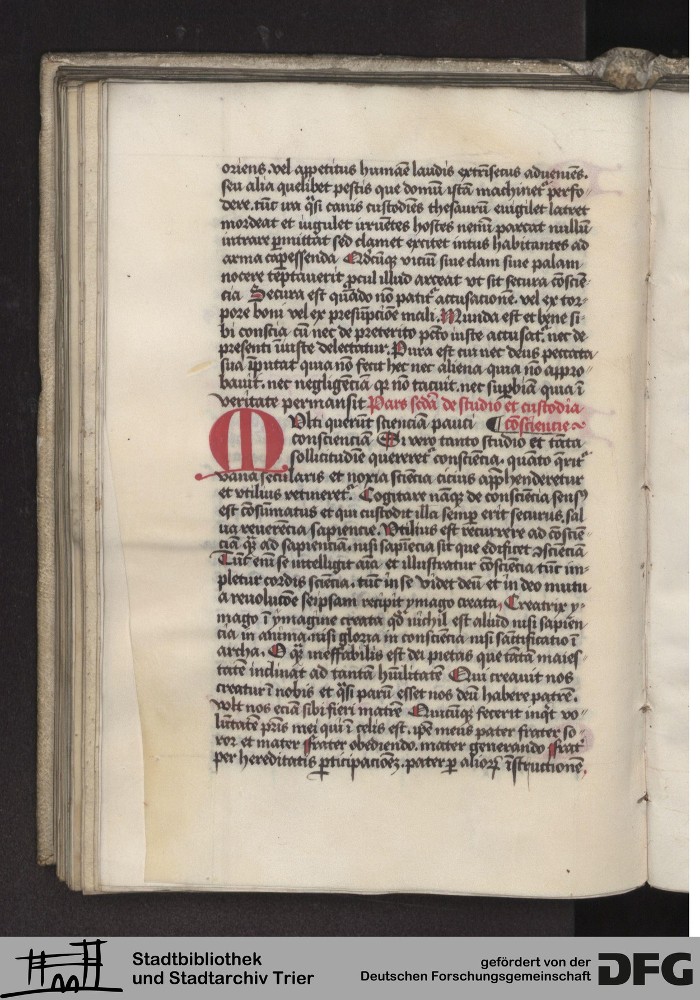 oriens. vel appetitus humāe laudis extrīsecus adueniēs.
seu alia quelibet pestis que domū istā machinet᷑ perfo-
dere. tūc ira q̄si canis custodiēs thesaurū euigilet latret
mordeat et iugulet irruētes hostes nemī parcat nullū
intrare ꝑmittat sed clamet excitet intus habitantes ad
arma capessenda Qd'cūq; viciū siue clam siue palam
nocere tēptauerit ꝓcul illud arceat vt sit secura cōsciē-
cia Secura est quādo nō patit᷑ accusationē. vel ex tor-
pore boni vel ex presūpcōe mali. Munda est et bn̄e si-
bi conscia cū nec de preterito pctō iuste accusat᷑. nec de
presenti iniuste delectatur. Pura est cui nec deus peccata
sua īputat quia nō fecit hec nec aliena quia nō appro-
bauit. nec negligēciā qr nō tacuit. nec suꝑbiā quia ī
veritate permansit Pars sēda de studio et custodia
Multi querūt scienciam pauci ¶ cōsciencie
conscienciam Si vero tanto studio et tāta
sollicitudīe quereret᷑ consciēcia. quāto q̄rit᷑
vana secularis et noxia sciēcia cicius apphenderetur
et vtilius retineret᷑. Cogitare nāq; de consciēcia sensꝰ
est cōsūmatus et qui custodit illā semꝑ erit securus. sal
ua reuerēcia sapiencie. Vtilius est recurrere ad cōsciē-
ciā qᷓ ad sapienciā. nisi sapiēcia sit que edificet ꝯsciēciā
Tūc em̄ se intelligit aīa et illustratur cōsciēcia tūc im-
pletur cordis sciēcia. tūc in se videt deū et in deo mutu
a reuolucōe seipsam recipit ymago creata, Creatrix y-
mago ī ymagine creata qd' nichil est aliud nisi sapien
cia in anima. nisi gloria in consciēcia nisi sāctificatio ī
archa. O qᷓ ineffabilis est dei pietas que tātā maies-
tatē inclinat ad tantam hūilitatē Qui creauit nos
creatur ī nobis et q̄si parū esset nos deū habere patrē.
vult nos eciā sibi fieri matrē Quicūq; fecerit inq̄t vo-
lūtatē pris mei qui ī celis est. ipē meus pater frater so-
ror et mater Frater obediendo. mater generando Frat᷑
per hereditatis ꝑticipacionēz. pater ꝑ alioꝝ īstructionē,
Stadtbibliothek
und Stadtarchiv Trier
gefördert von der
Deutschen Forschungsgemeinschaft
DFG